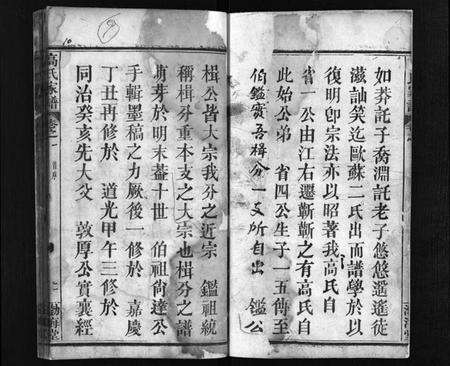 如莽託子喬淵託老子悠悠遥遥徒
滋訕笑迄歐蘇二氏出而譜學於以
復明卽宗法亦以昭著我高氏自
省一公由江右遷蘄蘄之有高氏自
此始公弟 省四公生子一五傳至
伯鑑實吾楫分一支所自出 鑑公
楫公皆大宗我分之近宗 鑑祖統
稱楫分重本支之大宗也楫分之譜
萌芽於明末葢十世 伯祖尙達公
手輯墨稿之力厥後一修於 嘉慶
丁丑再修於 道光甲午三修於
同治癸亥先大父 敦厚公實襄經
高氏家譜
卷之一
渤海堂